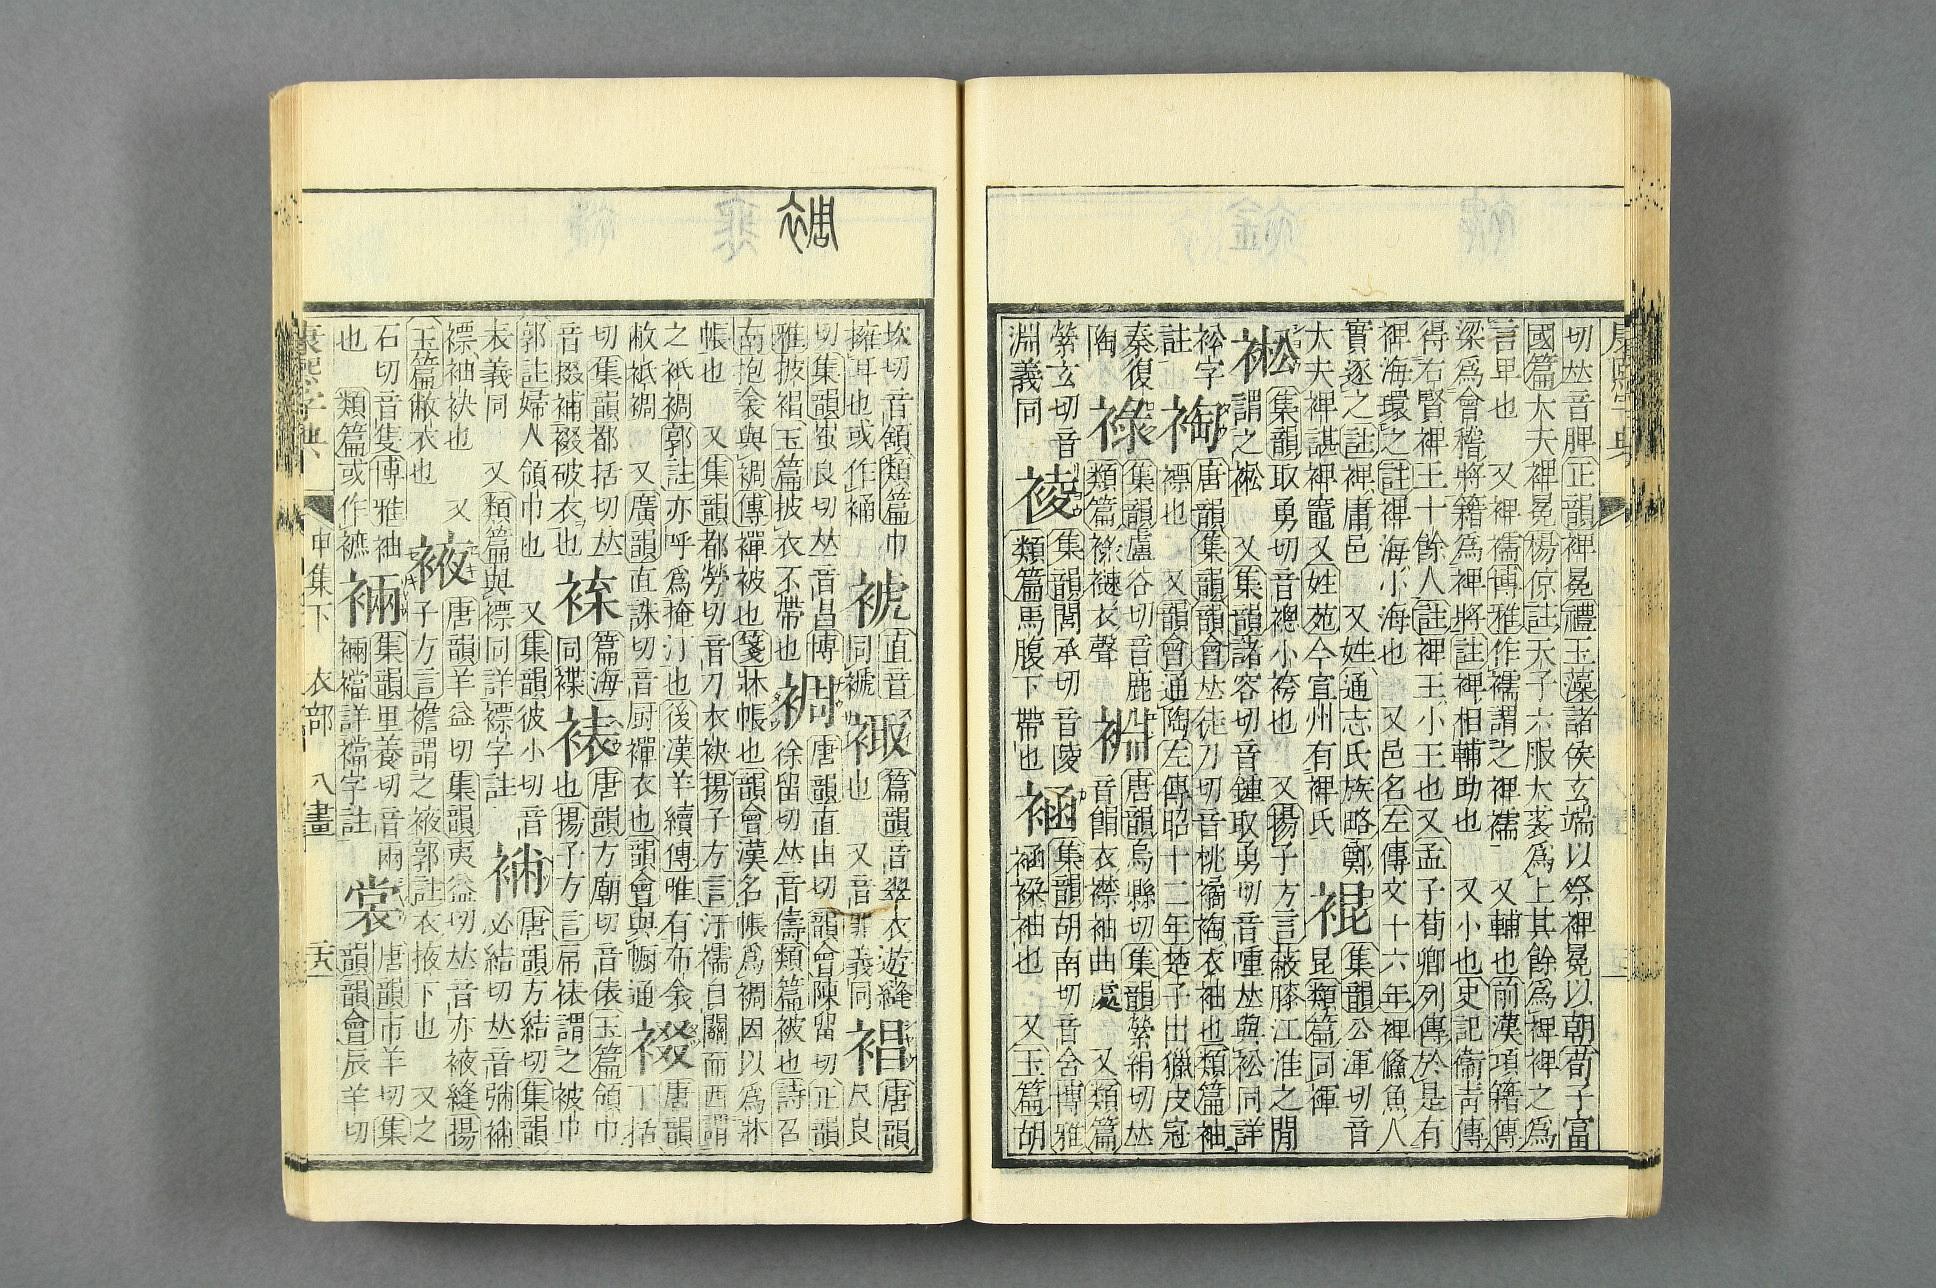 切𠀤音脾正韻裨冕禮玉藻諸侯玄端以祭裨冕以朝荀子富
國篇大夫裨冕楊倞註天子六服大裘爲上其餘爲裨裨之爲
言卑也 又裨襦博雅作襦謂之裨襦 又輔也前漢項籍傳
梁爲會稽將籍爲裨將註裨相輔助也 又小也史記衞靑傳
得右賢裨王十餘人註裨王小王也又孟子荀卿列傳於是有
裨海環之註裨海小海也 又邑名左傳文十六年裨鯈魚人
實逐之註裨庸邑 又姓通志氏族略鄭
大夫裨諶裨竈又姓苑今宣州有裨氏
裩
集韻公渾切音
昆類篇同褌
衳
集韻取勇切音總小袴也 又揚子方言蔽膝江淮之閒
謂之衳 又集韻諸容切音鍾取勇切音喠𠀤與衳同詳
衳字
註
裪
唐韻集韻韻會𠀤徒刀切音桃襎裪衣袖也類篇袖
褾也 又韻會通陶左傳昭十二年楚子出獵皮冠
秦復
陶
祿
集韻盧谷切音鹿
類篇祿褳衣聲
裫
唐韻烏縣切集韻縈絹切𠀤
音餶衣襟袖曲處 又類篇
縈玄切音
淵義同
祾
集韻閭承切音陵
類篇馬腹下帶也
涵
集韻胡南切音含博雅
涵䘾袖也 又玉篇胡
坎切音頷類篇巾
擁耳也或作桶
裭
直音
同褫
䘼
篇韻音翠衣遊縫
也 又音罪義同
裮
唐韻
尺良
切集韻蚩良切𠀤音昌博
雅披裮玉篇披衣不帶也
裯
唐韻直由切韻會陳留切正韻
徐留切𠀤音儔類篇被也詩召
南抱衾與裯傳襌被也箋牀帳也韻會漢名帳爲裯因以爲牀
帳也 又集韻都勞切音刀衣袂揚子方言汗襦自關而西謂
之祇裯郭註亦呼爲掩汗也後漢羊續傳唯有布衾
敝祇裯 又廣韻直誅切音厨襌衣也韻會與幮通
裰
唐韻
丁括
切集韻都括切𠀤
音掇補裰破衣也
褋
篇海
同褋
裱
唐韻方廟切音俵玉篇領巾
也揚子方言帍裱謂之被巾
郭註婦人領巾也 又集韻彼小切音
表義同 又類篇與褾同詳褾字註
唐韻方結切集韻
必結切𠀤音彌
褾袖袂也 又
玉篇敝衣也
裺
唐韻羊益切集韻夷益切𠀤音亦裺縫揚
子方言襜謂之裺郭註衣掖下也 又之
石切音隻博雅袖
也 類篇或作襦
裲
集韻里養切音兩
裲襠詳襠字註
裳
唐韻市羊切集
韻韻會辰羊切
康熙字典
申集下 衣部 八畫